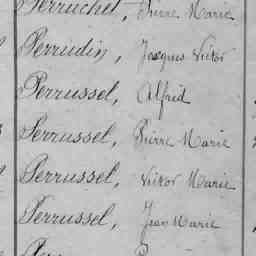 Perruchet, Pierre Marie
Perrudin, Jacques Victor
Perrussel, Alfred
Perrussel, Pierre Marie
Perrussel, Victor Marie
Perrussel, Jean Marie